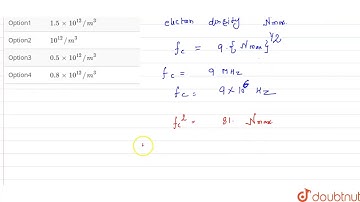 Option1 1.5 × 10¹² / m³
Option2 10¹² / m³
Option3 0.5 × 10¹² / m³
Option4 0.8 × 10¹² / m³
electron density Nmax
fc = 9 {Nmax}^1/2
fc = 9 MHz
fc = 9×10⁶ Hz
fc² = 81 Nmax
doubtnut